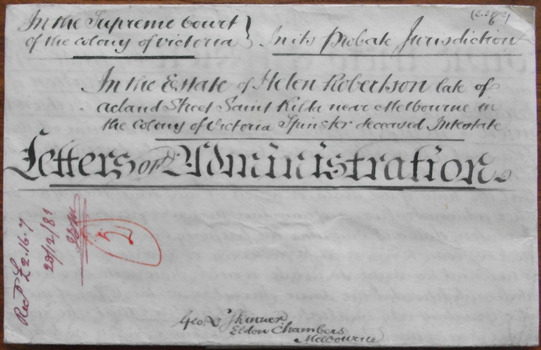 In the Supreme Court
of the Colony of Victoria } In its Probate Jurisdiction
In the Estate of Helen Robertson late of
Acland Street Saint Kilda near Melbourne in
the Colony of Victoria Spinster deceased Intestate
Letters of Administration
Recd £2.16.7
23/12/81
2
Geo. L. Skinner
Eldon Chambers
Melbourne